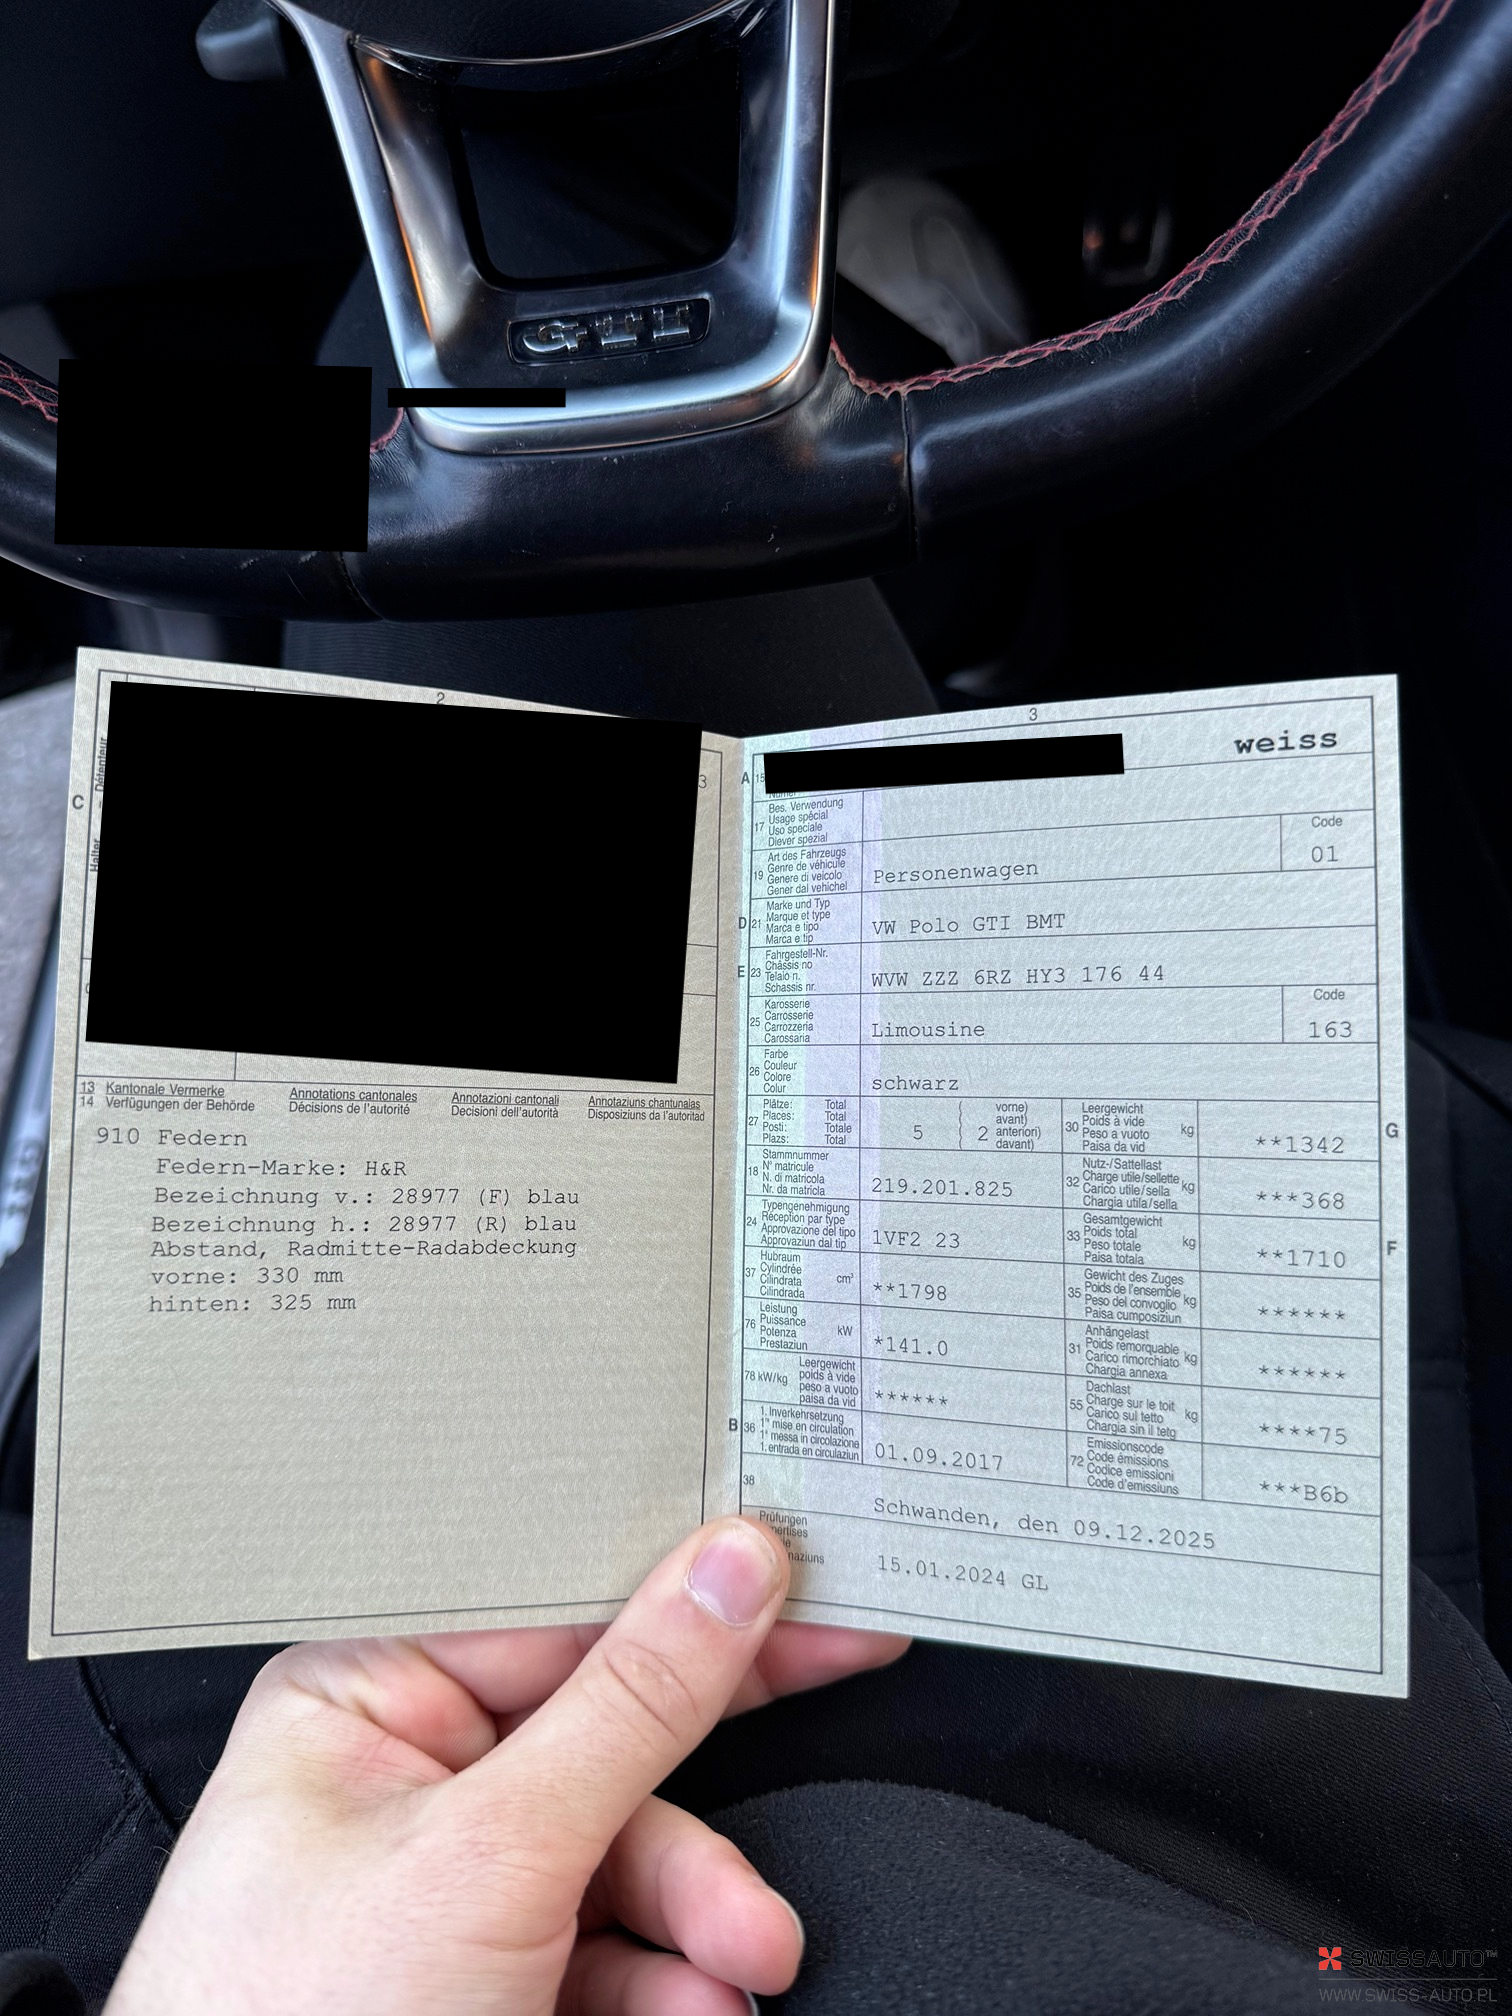 GTI
2
Halter – Détenteur
C
3
13 Kantonale Vermerke Annotations cantonales Annotazioni cantonali Annotaziuns chantunalas
14 Verfügungen der Behörde Décisions de l'autorité Decisioni dell'autorità Disposiziuns da l'autoritad
910 Federn
Federn-Marke: H&R
Bezeichnung v.: 28977 (F) blau
Bezeichnung h.: 28977 (R) blau
Abstand, Radmitte-Radabdeckung
vorne: 330 mm
hinten: 325 mm
3
A 15
weiss
17 Bes. Verwendung
Usage spécial
Uso speciale
Diever spezial
Code
01
19 Art des Fahrzeugs
Genre de véhicule
Genere di veicolo
Gener dal vehichel
Personenwagen
D 21 Marke und Typ
Marque et type
Marca e tipo
Marca e tip
VW Polo GTI BMT
E 23 Fahrgestell-Nr.
Châssis no
Telaio n.
Schassis nr.
WVW ZZZ 6RZ HY3 176 44
25 Karosserie
Carrosserie
Carrozzeria
Carossaria
Limousine
Code
163
26 Farbe
Couleur
Colore
Colur
schwarz
27 Plätze: Total
Places: Total
Posti: Totale
Plazs: Total
5 ( 2 vorne)
avant)
anteriori)
davant)
30 Leergewicht
Poids à vide
Peso a vuoto
Paisa da vid
kg
**1342
G
18 Stammnummer
N° matricule
N. di matricola
Nr. da matricla
219.201.825
32 Nutz-/Sattellast
Charge utile/sellette
Carico utile/sella
Chargia utila/sella
kg
***368
24 Typengenehmigung
Réception par type
Approvazione del tipo
Approvaziun dal tip
1VF2 23
33 Gesamtgewicht
Poids total
Peso totale
Paisa totala
kg
**1710
F
37 Hubraum
Cylindrée
Cilindrata
Cilindrada
cm³
**1798
35 Gewicht des Zuges
Poids de l'ensemble
Peso del convoglio
Paisa cumposiziun
kg
******
76 Leistung
Puissance
Potenza
Prestaziun
kW
*141.0
31 Anhängelast
Poids remorquable
Carico rimorchiato
Chargia annexa
kg
******
78 kW/kg Leergewicht
poids à vide
peso a vuoto
paisa da vid
******
55 Dachlast
Charge sur le toit
Carico sul tetto
Chargia sin il tetg
kg
****75
B 36 1. Inverkehrsetzung
1re mise en circulation
1a messa in circolazione
1. entrada en circulaziun
01.09.2017
72 Emissionscode
Code émissions
Codice emissioni
Code d'emissiuns
***B6b
38
Schwanden, den 09.12.2025
Prüfungen
15.01.2024 GL
SWISSAUTO™
WWW.SWISS-AUTO.PL